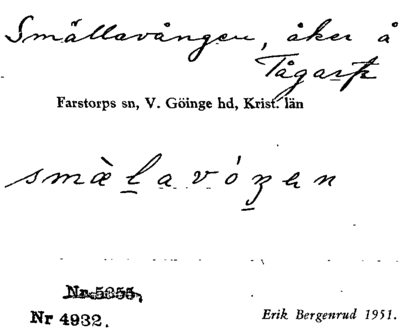 Smällavången, åker å
Tågarp
Farstorps sn, V. Göinge hd, Krist. län
smæ̀lavóŋən
Nr 5355,
Nr 4932.
Erik Bergenrud 1951.